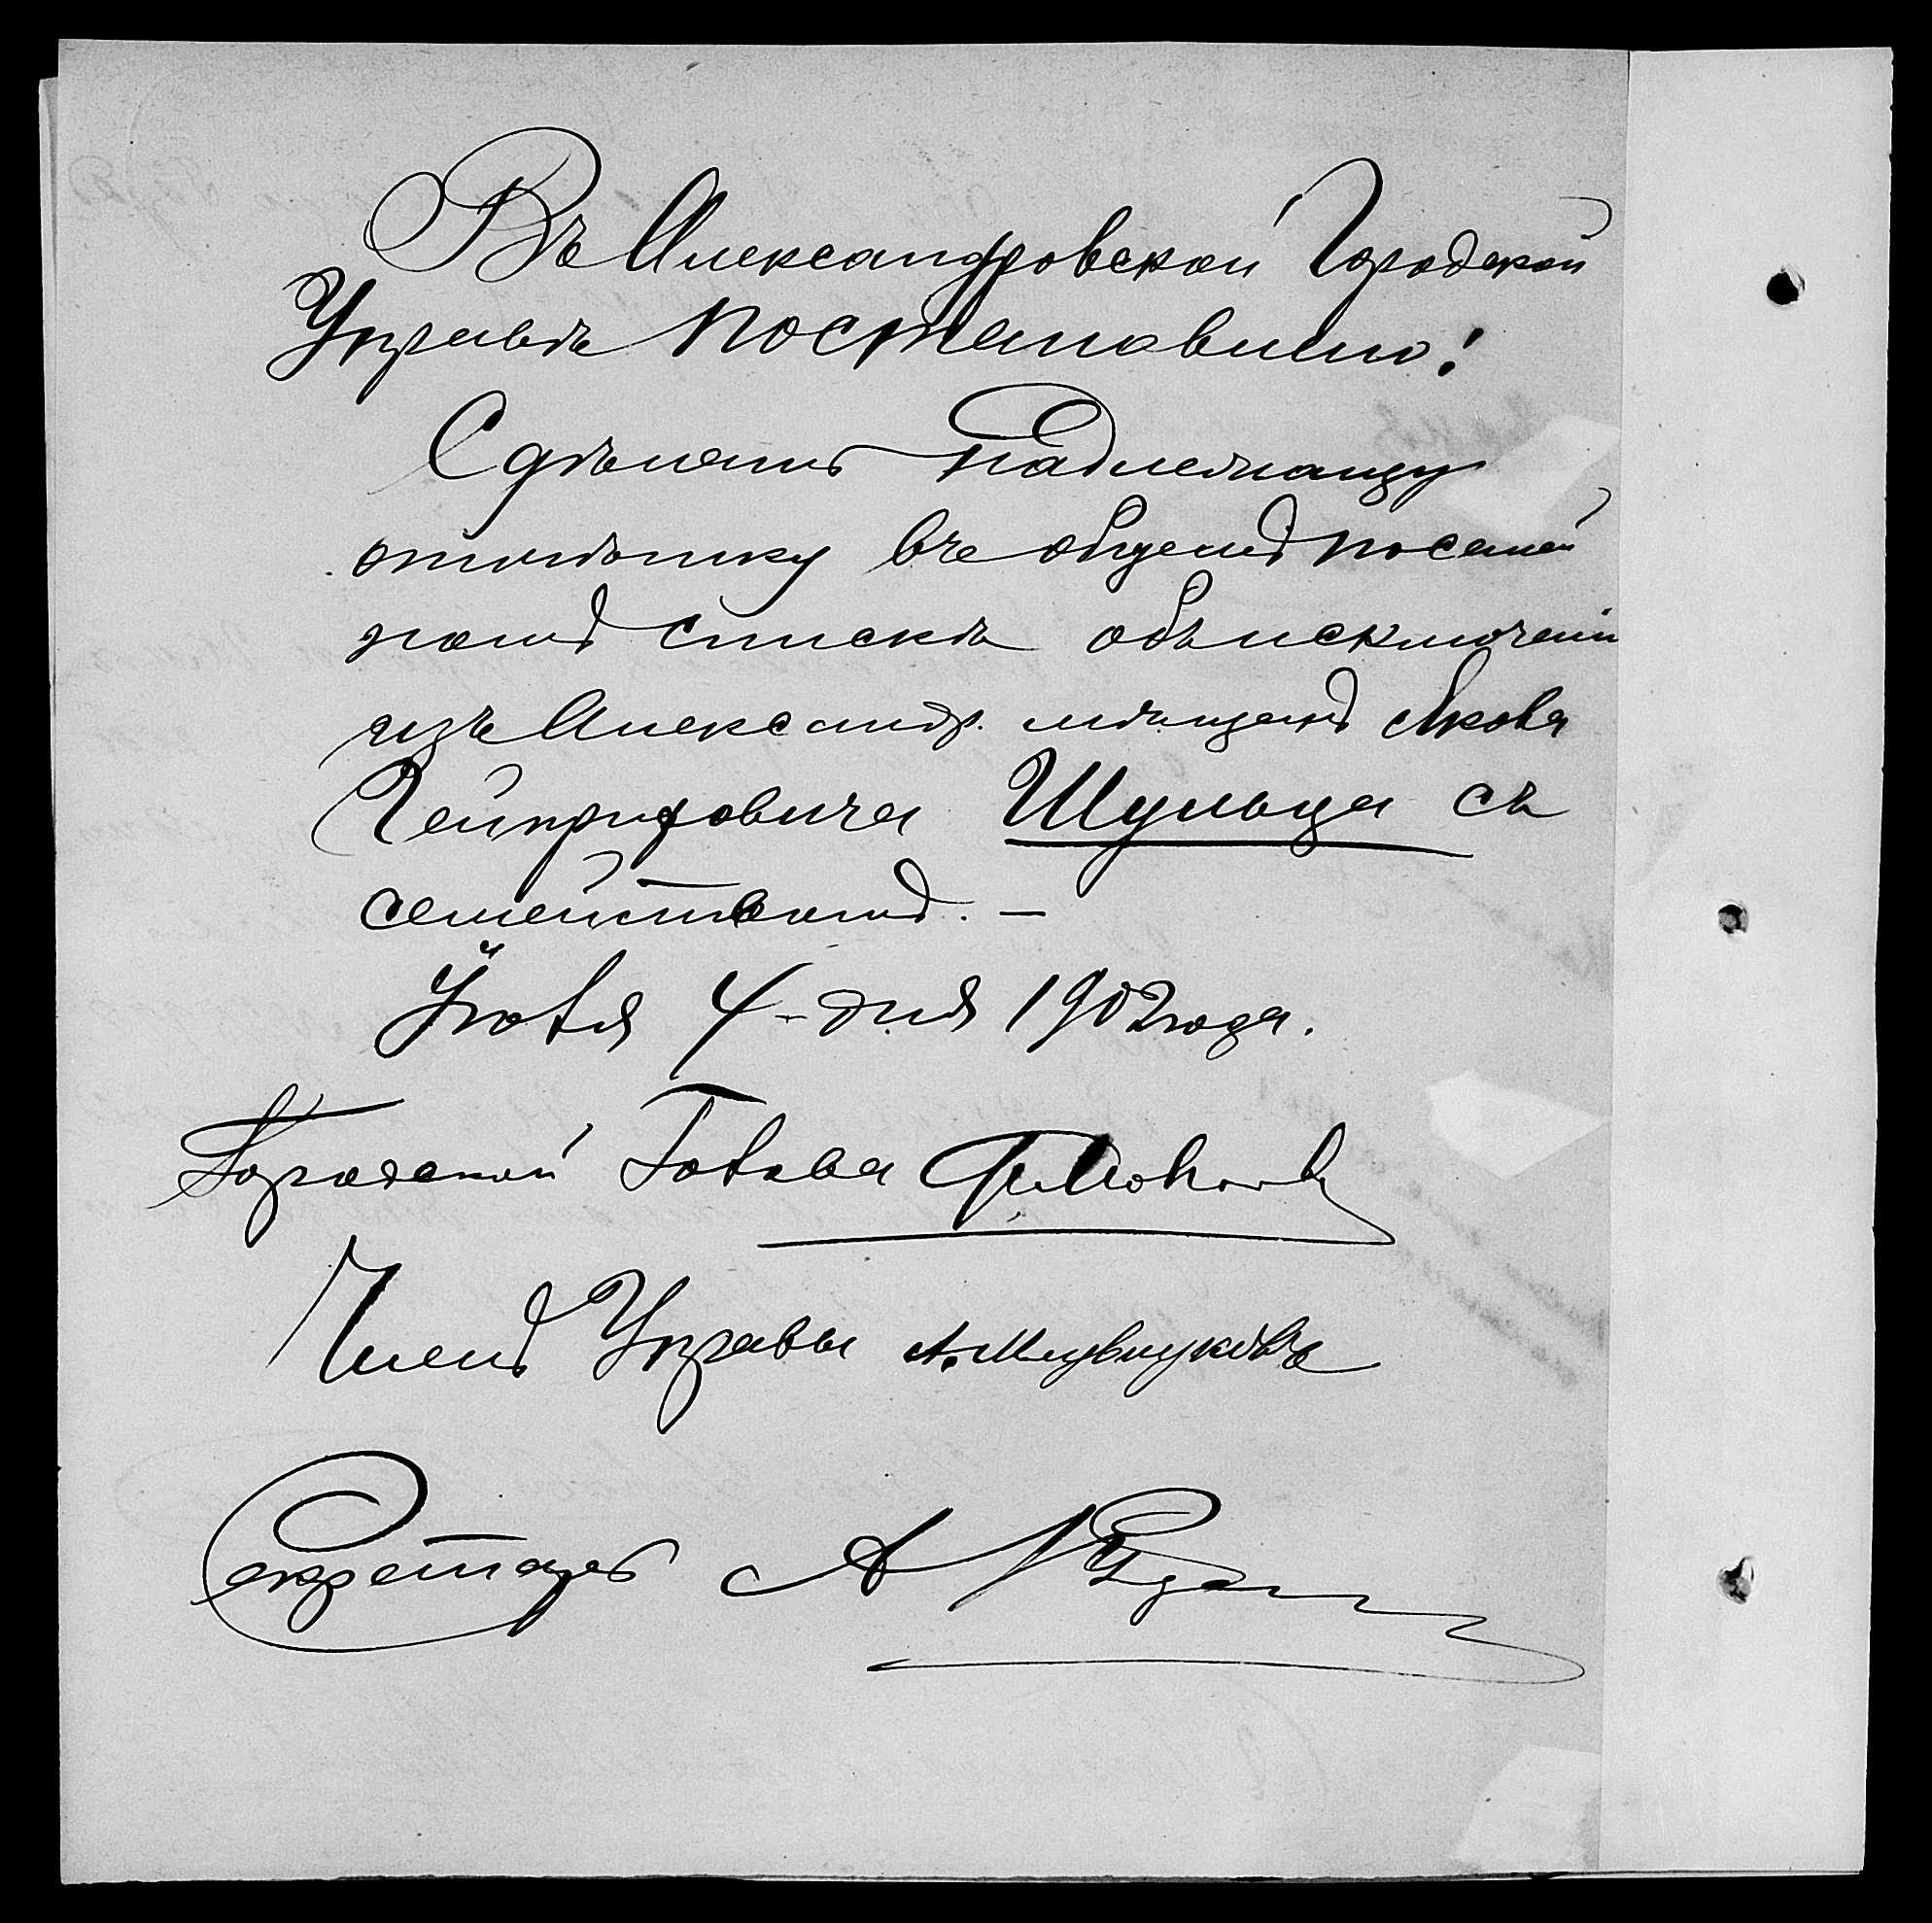 Въ Александровской Городской
Управѣ постановлено:
Сдѣлать надлежащу
отмѣтку въ общемъ посемей
номъ спискѣ объ исключеніи
изъ Александр. мѣщанъ Якова
Гейнриховича Шульца съ
семействомъ. —
Іюля 4 дня 1902 года.
Городской Голова
Членъ Управы
Секретарь А